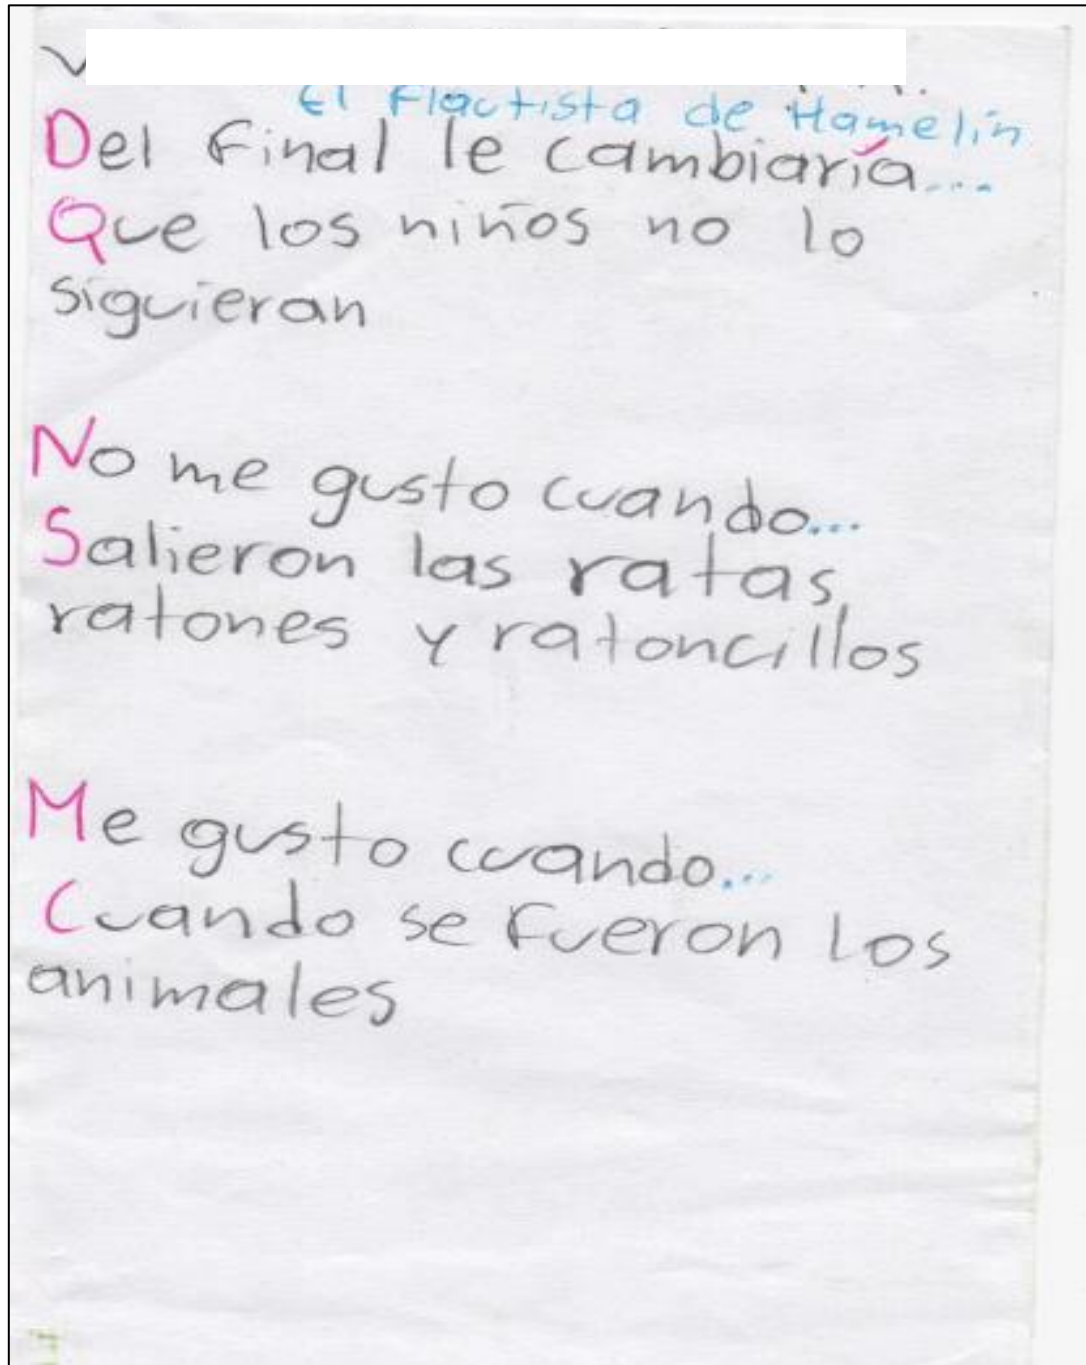 El Flautista de Hamelín
Del Final le cambiaría...
Que los niños no lo
siguieran
No me gusto cuando...
Salieron las ratas,
ratones y ratoncillos
Me gusto cuando...
Cuando se Fueron Los
animales